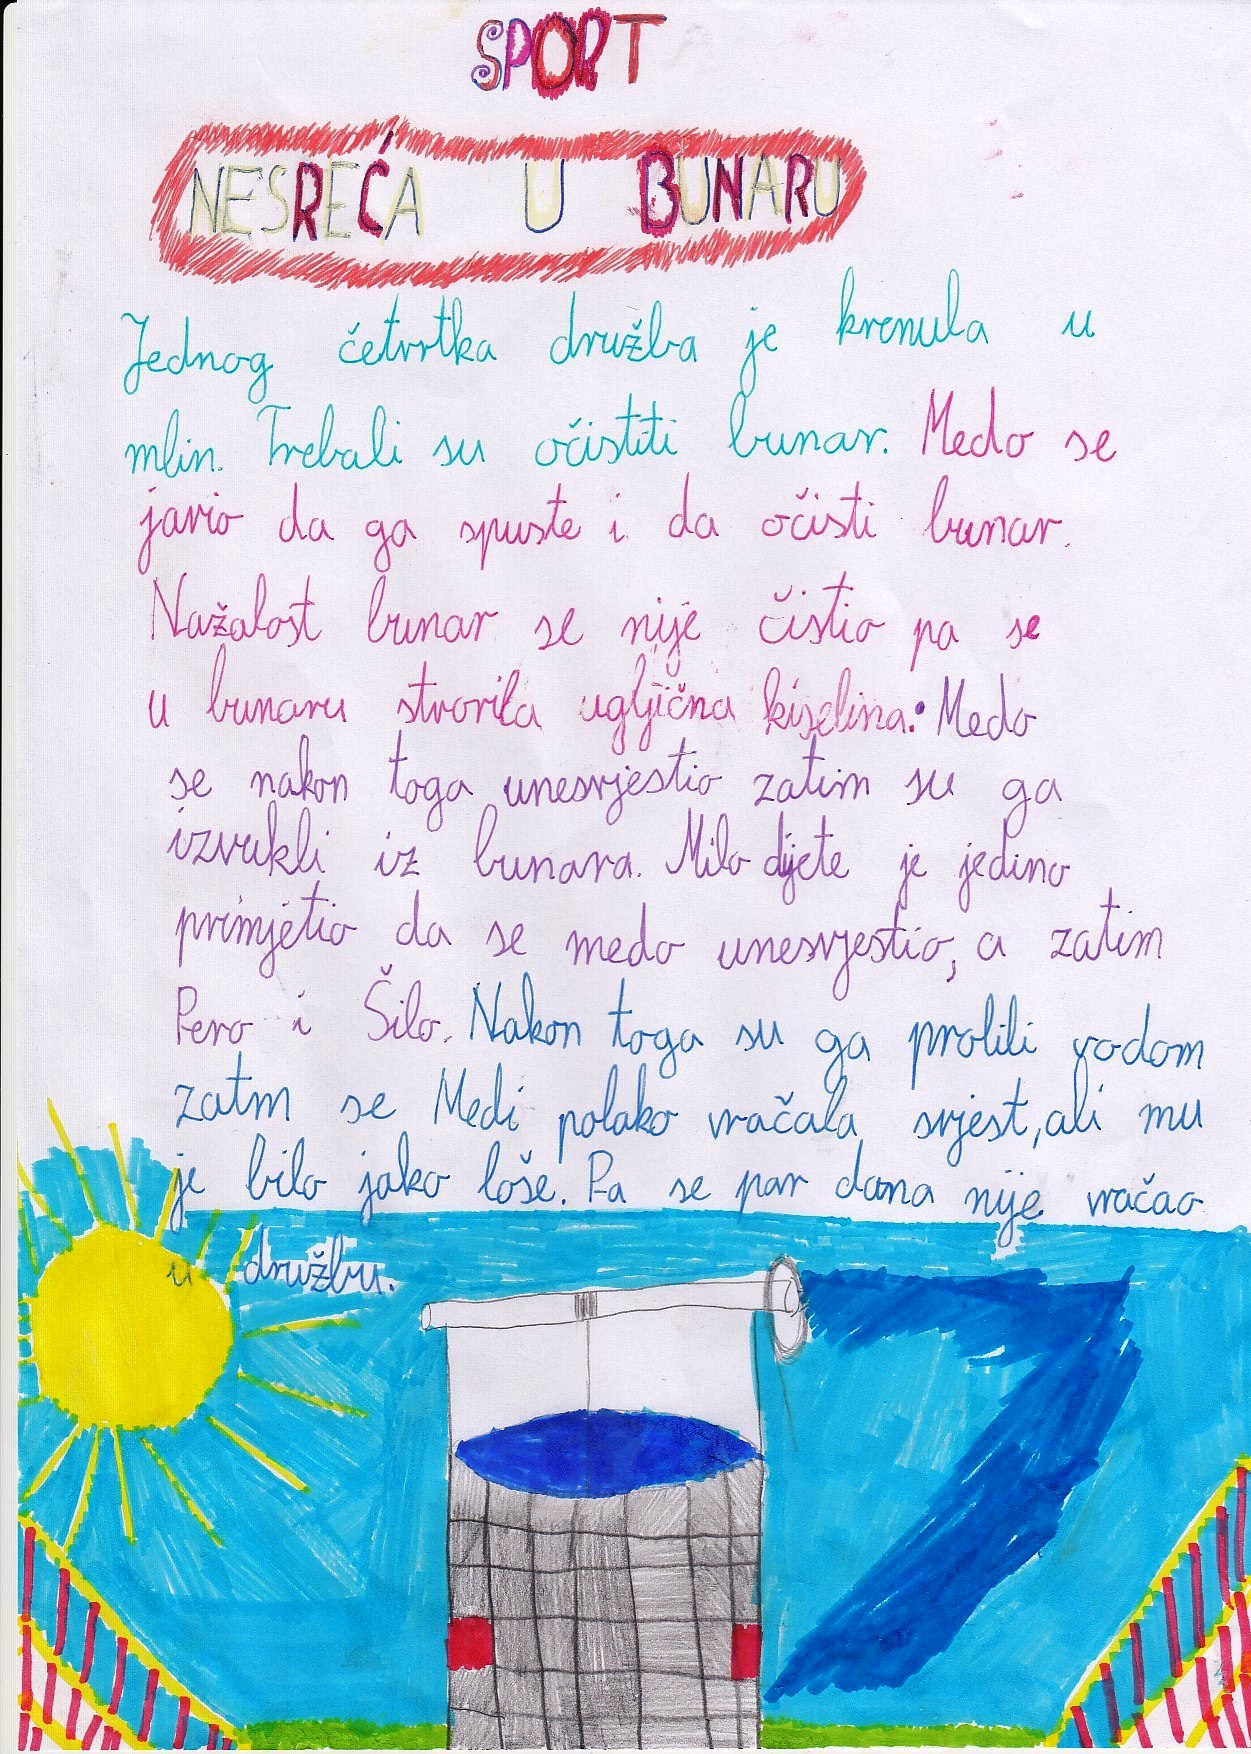 SPORT
NESREĆA U BUNARU
Jednog četvrtka družba je krenula u
mlin. Trebali su očistiti bunar. Medo se
javio da ga spuste i da očisti bunar.
Nažalost bunar se nije čistio pa se
u bunaru stvorila ugljična kiselina. Medo
se nakon toga unesvjestio zatim su ga
izvukli iz bunara. Milo dijete je jedino
primjetio da se medo unesvjestio, a zatim
Pero i Šilo. Nakon toga su ga prolili vodom
zatim se Medi polako vračala svjest, ali mu
je bilo jako loše. Pa se par dana nije vračao
u družbu.
7